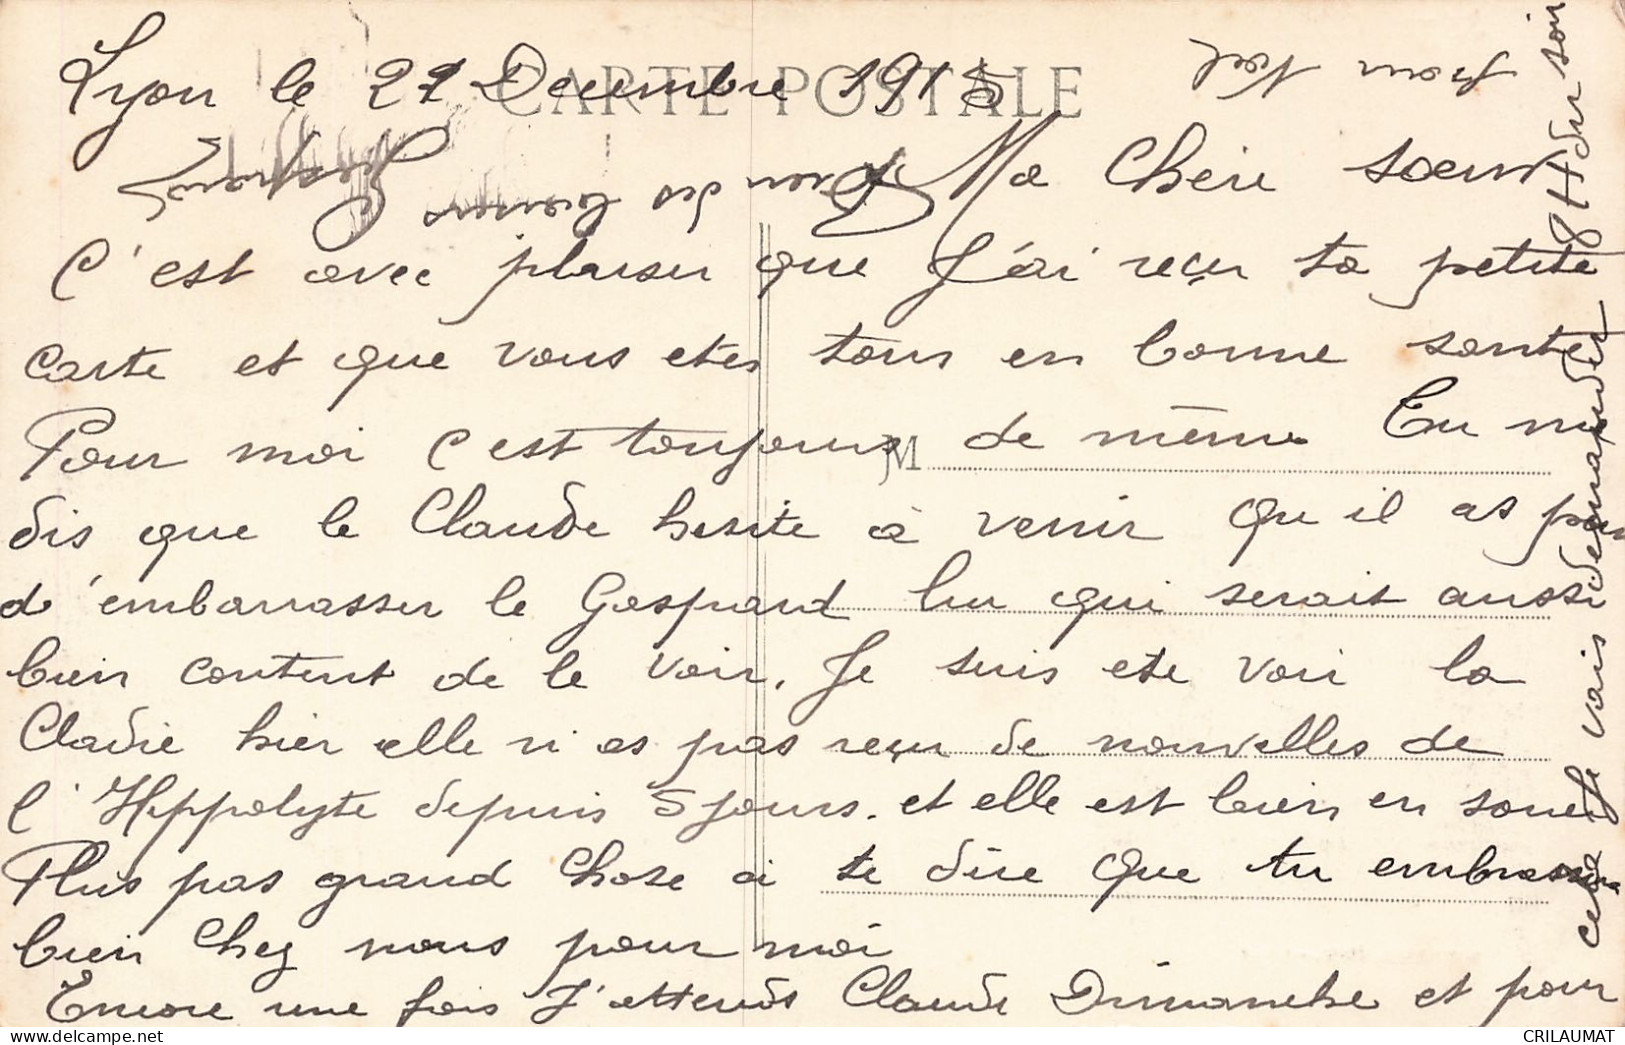 Lyon le 22 Decembre 1915
CARTE POSTALE
Ma Chère soeur
C'est avec plaisir que J'ai reçu ta petite
carte et que vous etes tous en bonne sante
Pour moi c'est toujours de même Tu me
M
dis que le Claude hesite a venir Qu il as peur
d'embarrasser le Gaspard lui qui serait aussi
bien content de le voir. Je suis ete voir la
Cladie hier elle n as pas reçu de nouvelles de
l'Hippolyte depuis 5 jours. et elle est bien en souci
Plus pas grand Chose a te dire Que tu embrassera
bien Chez nous pour moi
Encore une fois J'attends Claude Dimanche et pour
cela je vais demander 8 H du soir
pour Noel
Ton de Coeur
CRILAUMAT